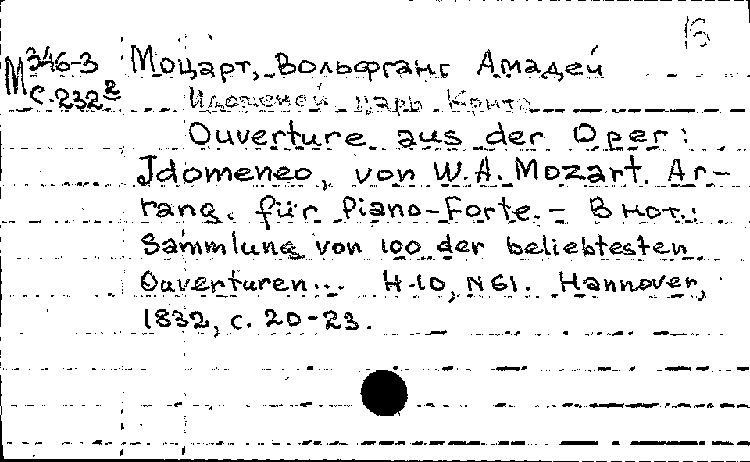 15
М 346-3 Моцарт, Вольфганг Амадей
с. 232² Идоменей царь Крита
Ouverture aus der Oper:
Jdomeneo, von W.A. Mozart. Ar-
rang. für Piano-Forte. – В нот.:
Sammlung von 100 der beliebtesten
Ouverturen... H-10, N61. Hannover,
1832, с. 20-23.